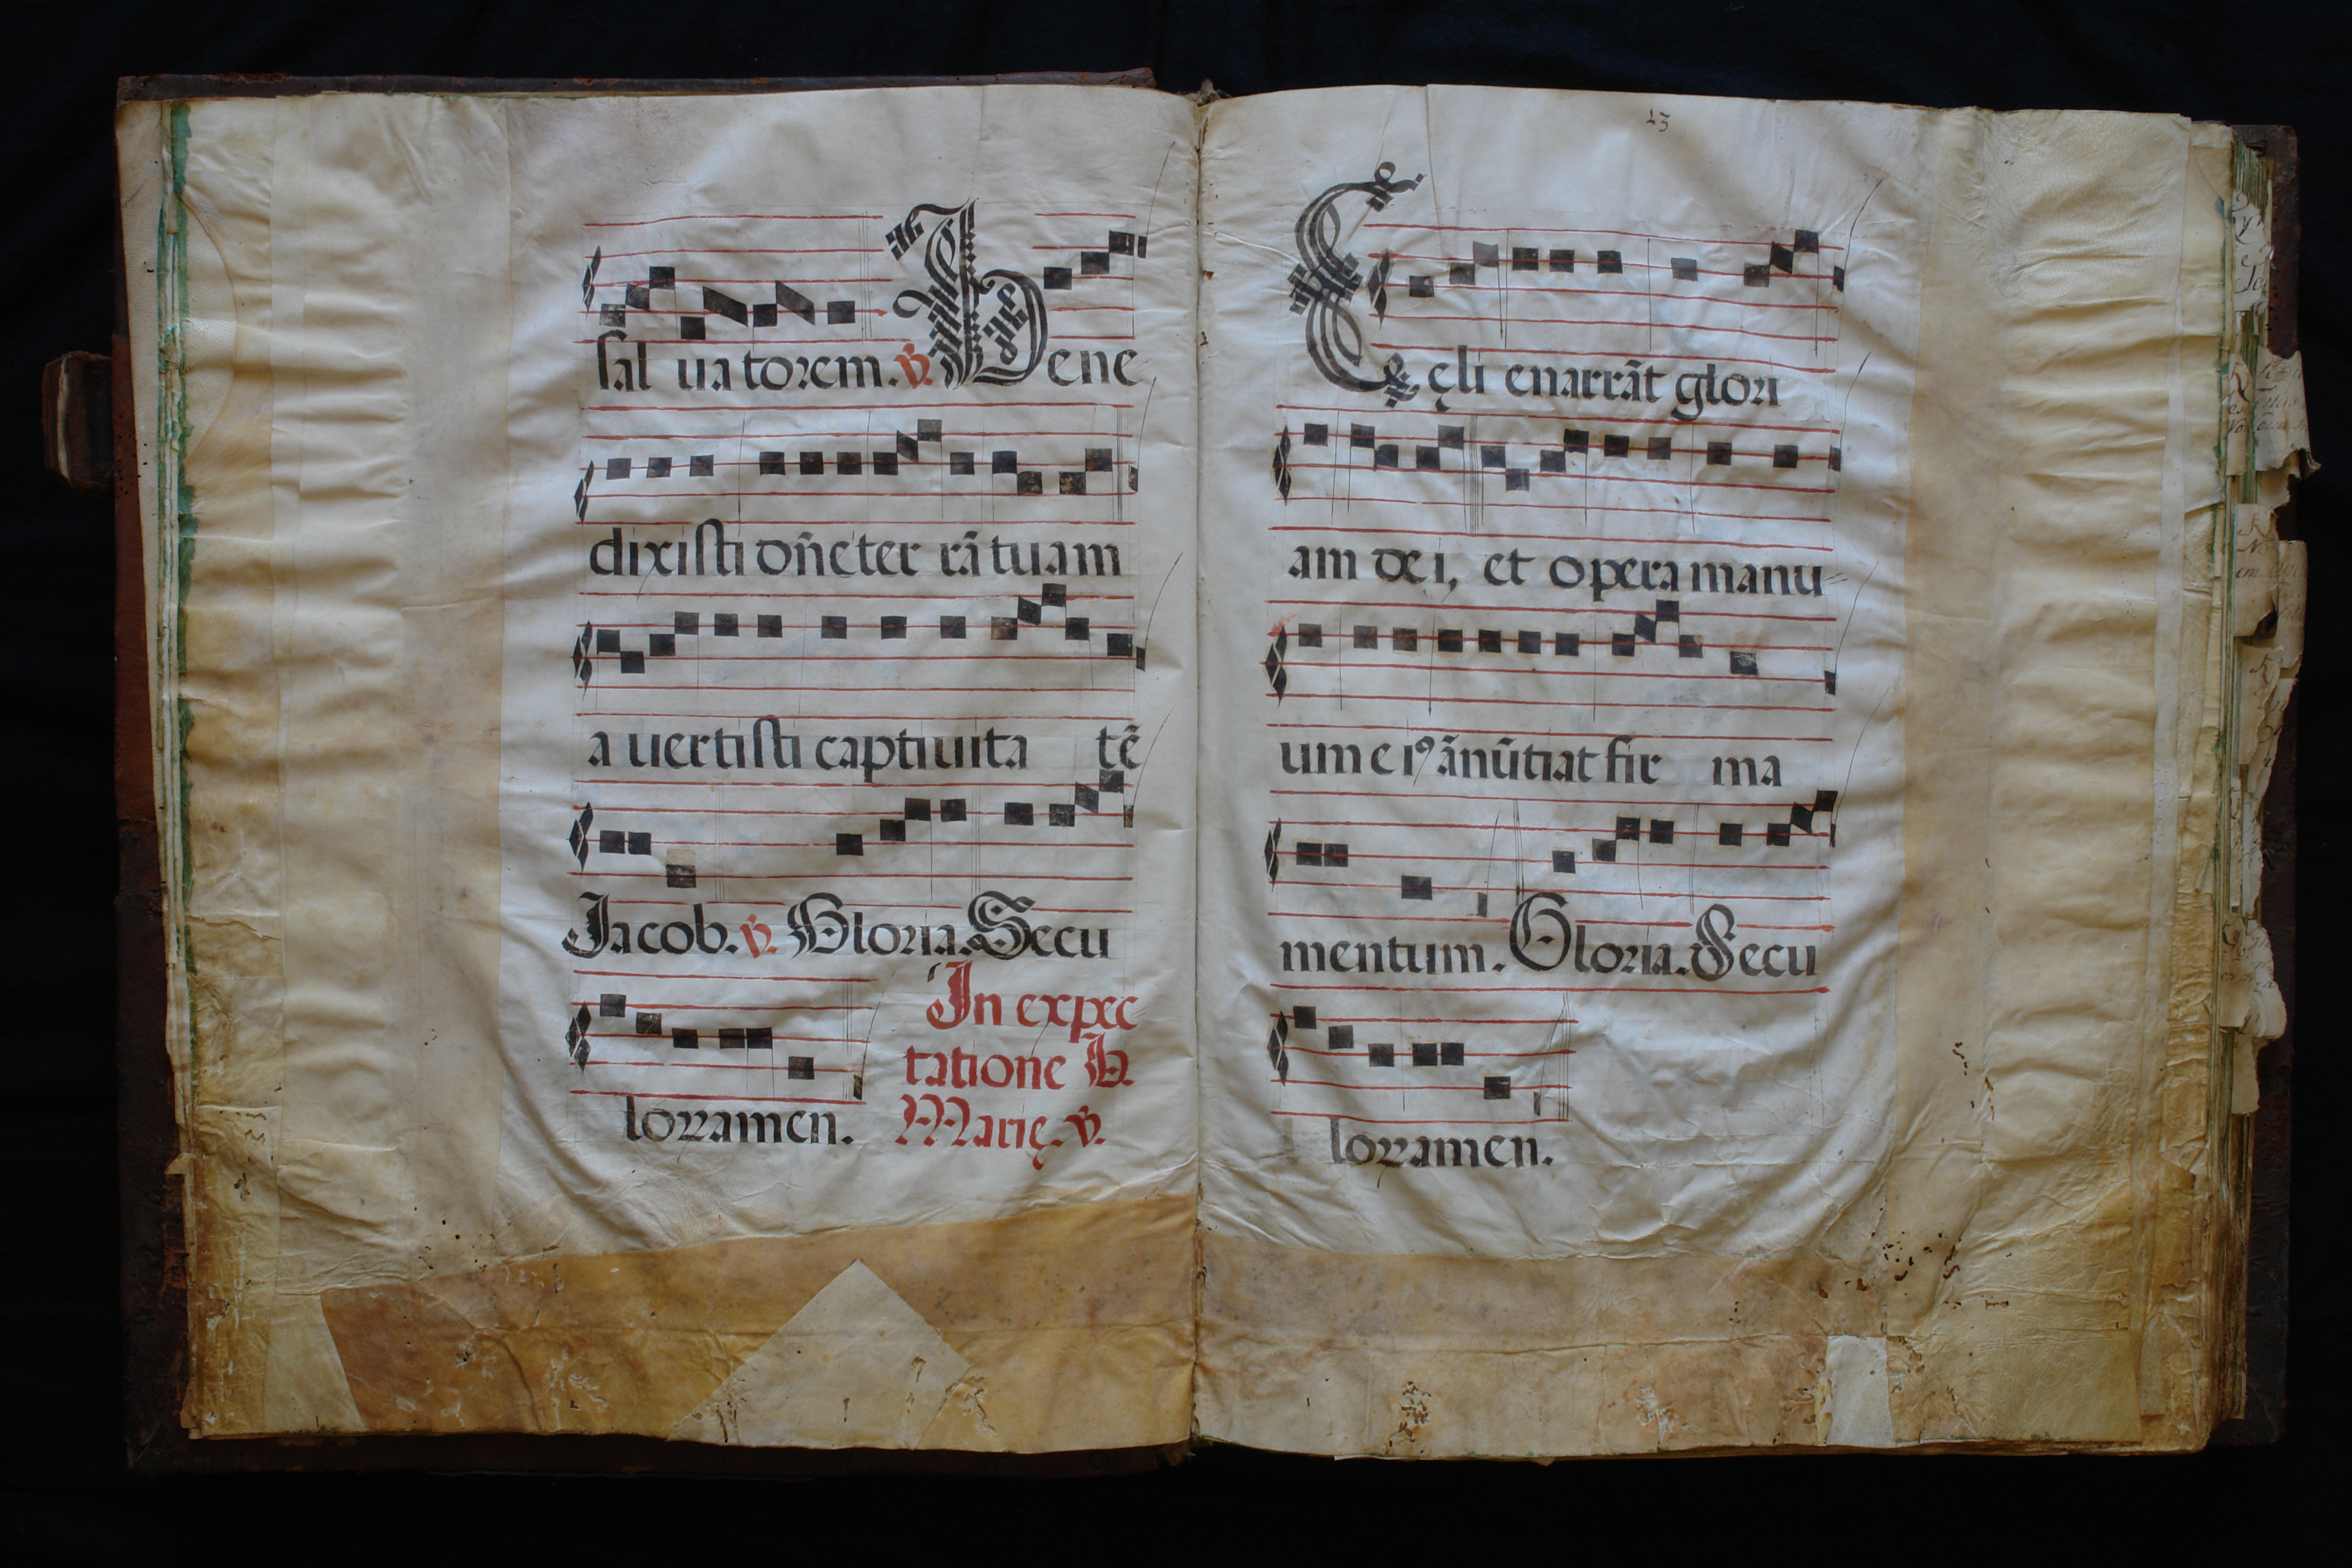 sal uatorem. v. Bene
dixisti dn̄e ter rā tuam
a uertisti captiuita tē
Jacob. v. Gloria. Secu
lorzamen. In expec
tatione B.
Marię. v.
23
Cęli enarrāt glori
am dei, et opera manu=
um eiꝰ ānūtiat fir ma
mentum. Gloria. Secu
lorzamen.